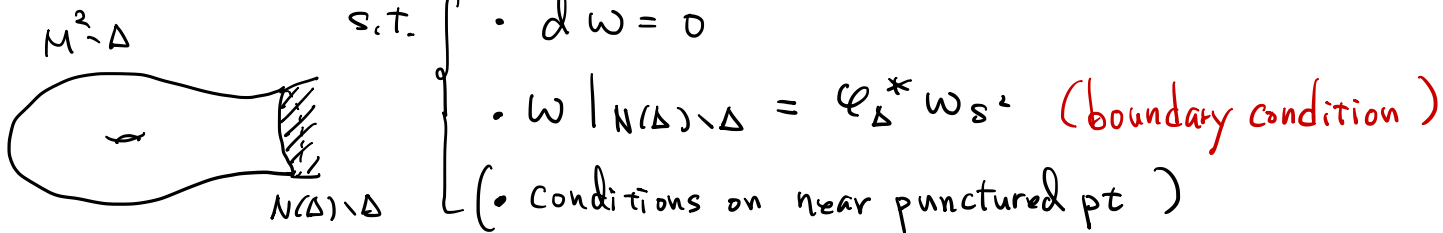 M²∖Δ
s.t. · dω = 0
· ω|N(Δ)∖Δ = φ_Δ^* ω_{S²} (boundary condition)
N(Δ)∖Δ
(· conditions on near punctured pt )